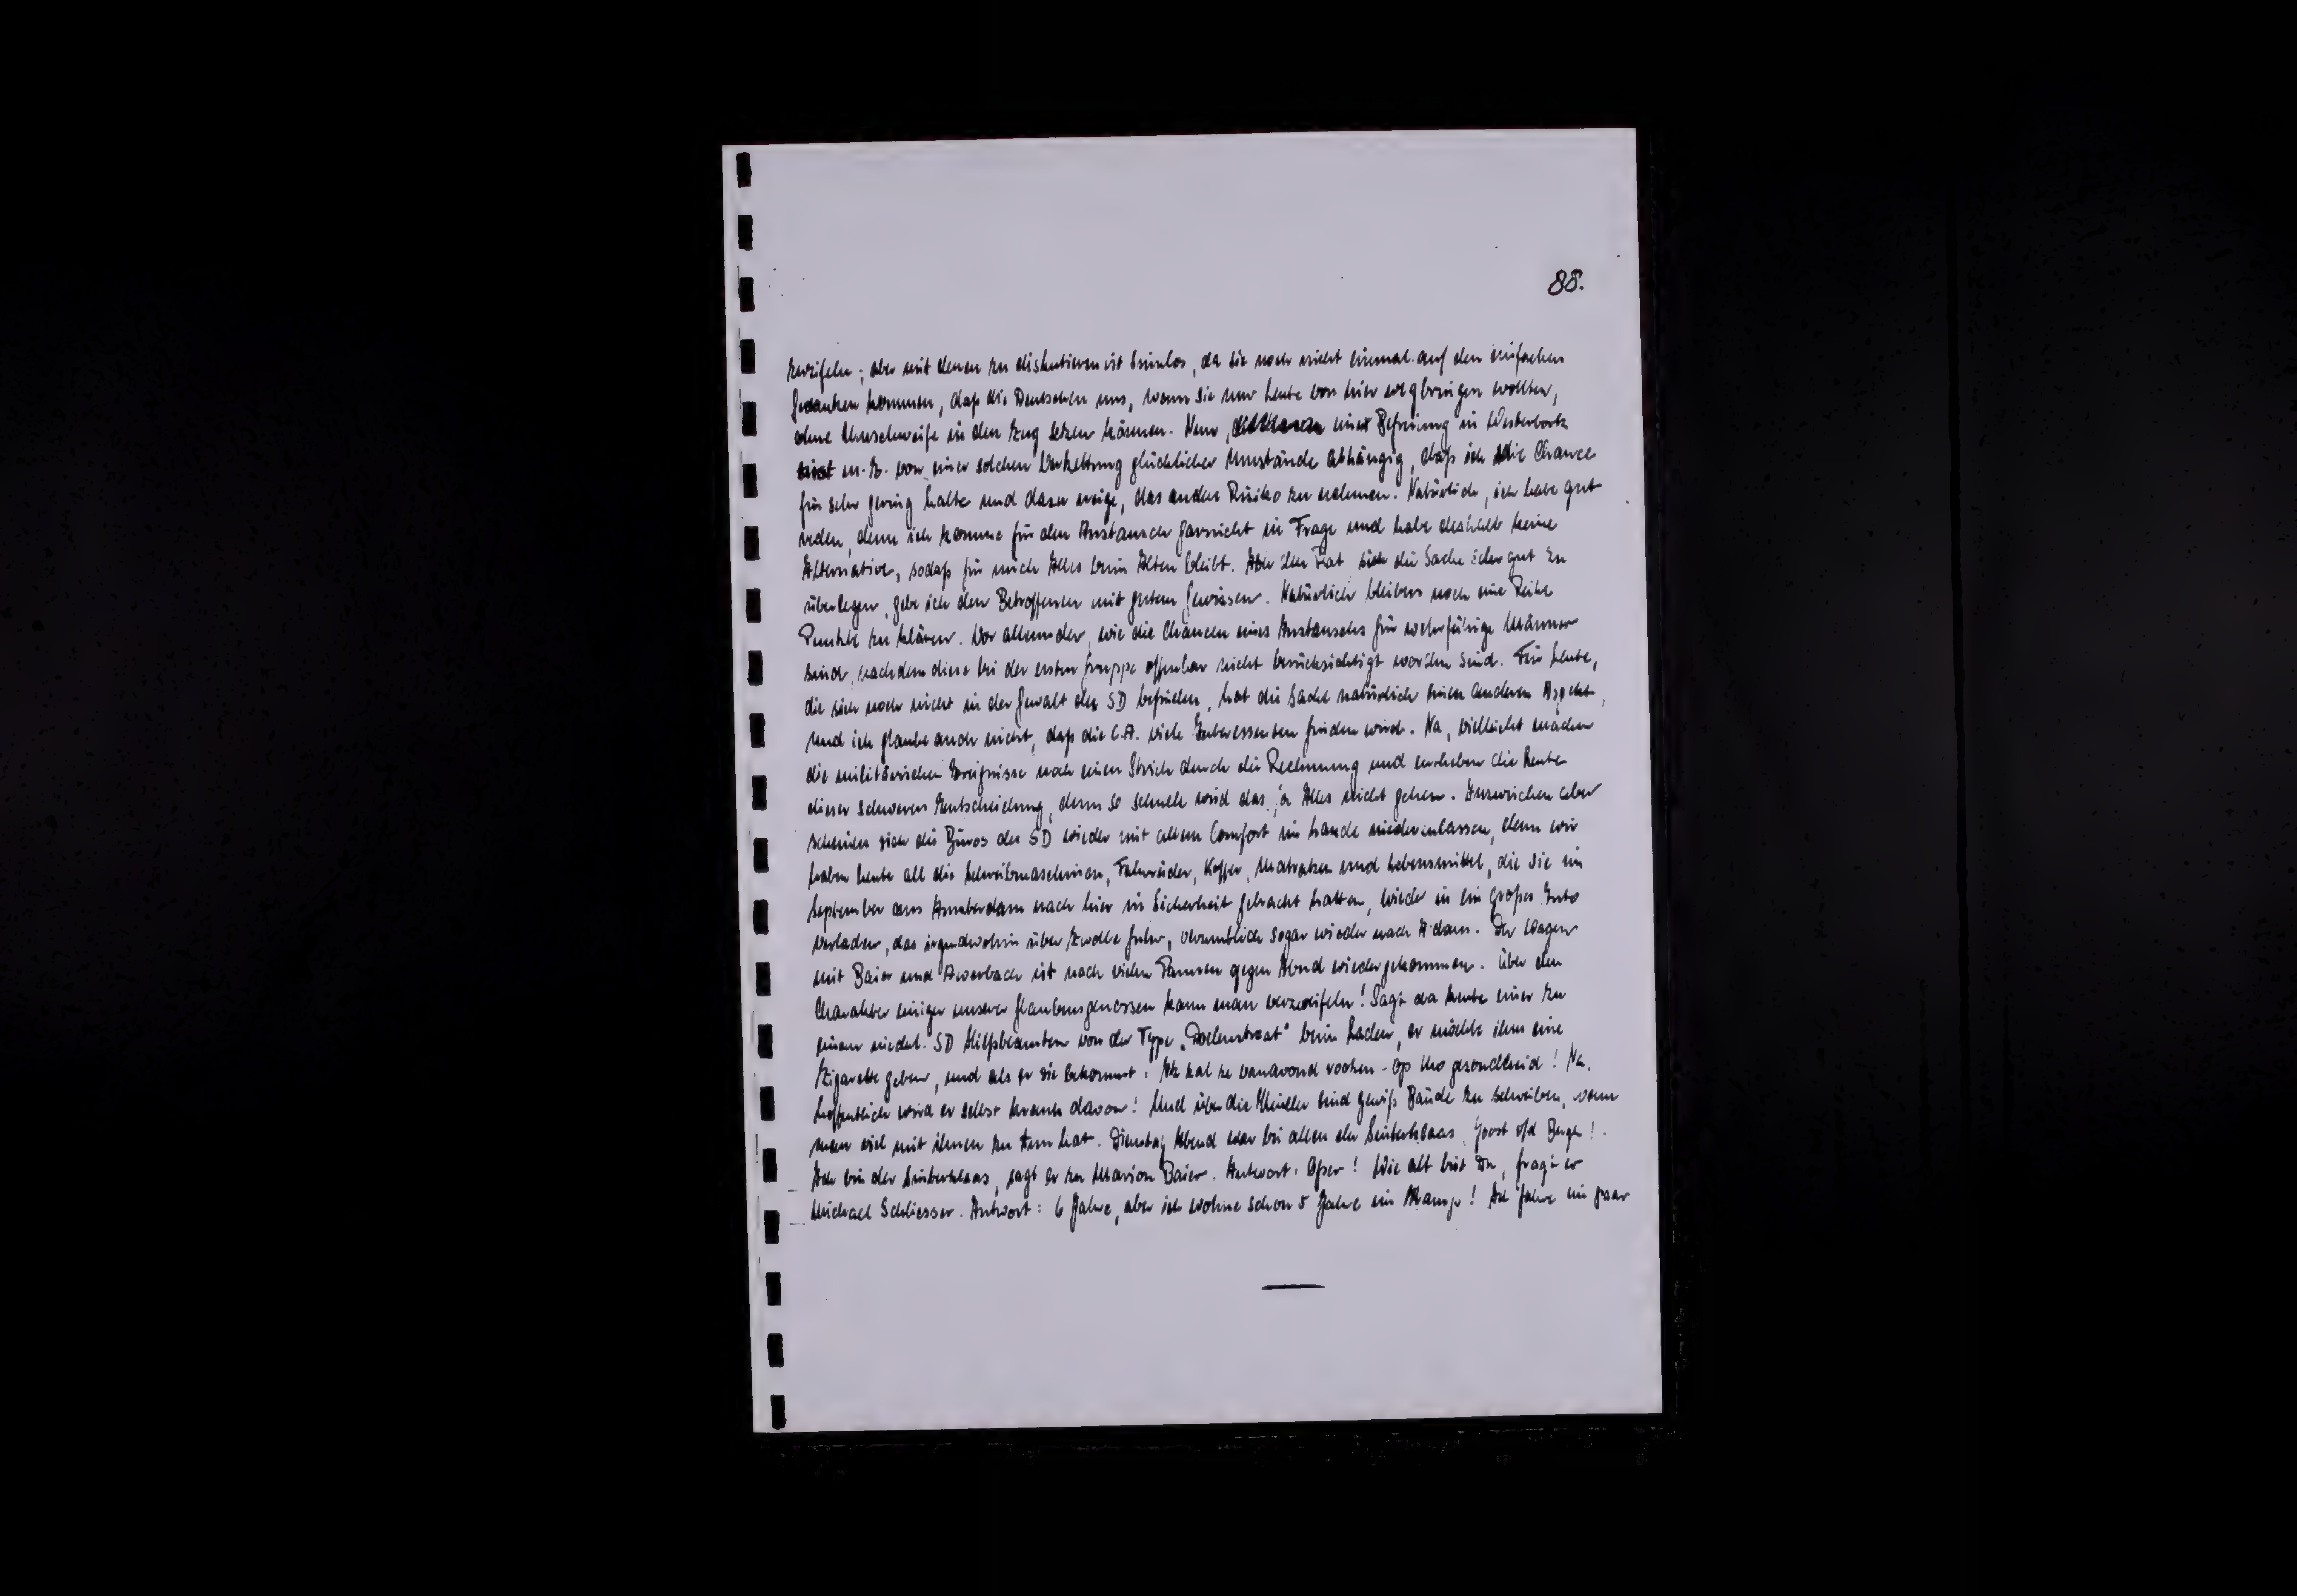 88.
zweifeln; aber mit denen zu diskutieren ist sinnlos, da sie noch nicht einmal auf den einfachen
Gedanken kommen, daß die Deutschen uns, wenn sie uns heute von hier wegbringen wollten,
ohne Umschweife in den Zug setzen können. Nun, eine Befreiung in Westerbork
ist m. E. von einer solchen Verkettung glücklicher Umstände abhängig, daß ich die Chance
für sehr gering halte und dazu neige, das andere Risiko zu nehmen. Natürlich, ich habe gut
reden, denn ich komme für den Austausch garnicht in Frage und habe deshalb keine
Alternative, sodaß für mich Alles beim Alten bleibt. Aber den Rat sich die Sache sehr gut zu
überlegen, gebe ich den Betroffenen mit gutem Gewissen. Natürlich bleiben noch eine Reihe
Punkte zu klären. Vor allem der, wie die Chancen eines Austauschs für wehrfähige Männer
sind, nachdem diese bei der ersten Gruppe offenbar nicht berücksichtigt worden sind. Für Leute,
die sich noch nicht in der Gewalt des SD befinden, hat die Sache natürlich einen anderen Aspekt,
und ich glaube auch nicht, daß die C.A. viele Interessenten finden wird. Na, vielleicht machen
die militärischen Ereignisse noch einen Strich durch die Rechnung und entheben die Leute
dieser schweren Entscheidung, denn so schnell wird das ja Alles nicht gehen. Inzwischen aber
scheinen sich die Büros des SD wieder mit allem Comfort im Lande niederzulassen, denn wir
haben heute all die Schreibmaschinen, Fahrräder, Koffer, Matratzen und Lebensmittel, die sie im
September aus Amsterdam nach hier in Sicherheit gebracht hatten, wieder in ein großes Auto
verladen, das irgendwohin über Zwolle fuhr, vermutlich sogar wieder nach A'dam. Der Wagen
mit Baier und Auerbach ist nach vielen Pannen gegen Abend wiedergekommen. Über den
Charakter einiger unserer Glaubensgenossen kann man verzweifeln! Sagt da heute einer zu
einem niederl. SD Hilfsbeamten von der Type „Doelenstraat" beim Laden, er möchte ihm eine
Zigarette geben, und als er sie bekommt: Ik zal ze vanavond rooken - op Uw gezondheid! Na,
hoffentlich wird er selbst krank davon! Und über die Kinder sind gewiß Bände zu schreiben, wenn
man viel mit ihnen zu tun hat. Dienstag Abend war bei allen der Sinterklaas, Joost o/d Bergh!
Ich bin der Sinterklaas, sagt er zu Marion Baier. Antwort: Opser! Wie alt bist Du, fragt er
Michael Schliesser. Antwort: 6 Jahre, aber ich wohne schon 5 Jahre im Kamp! Ich fahre ein paar